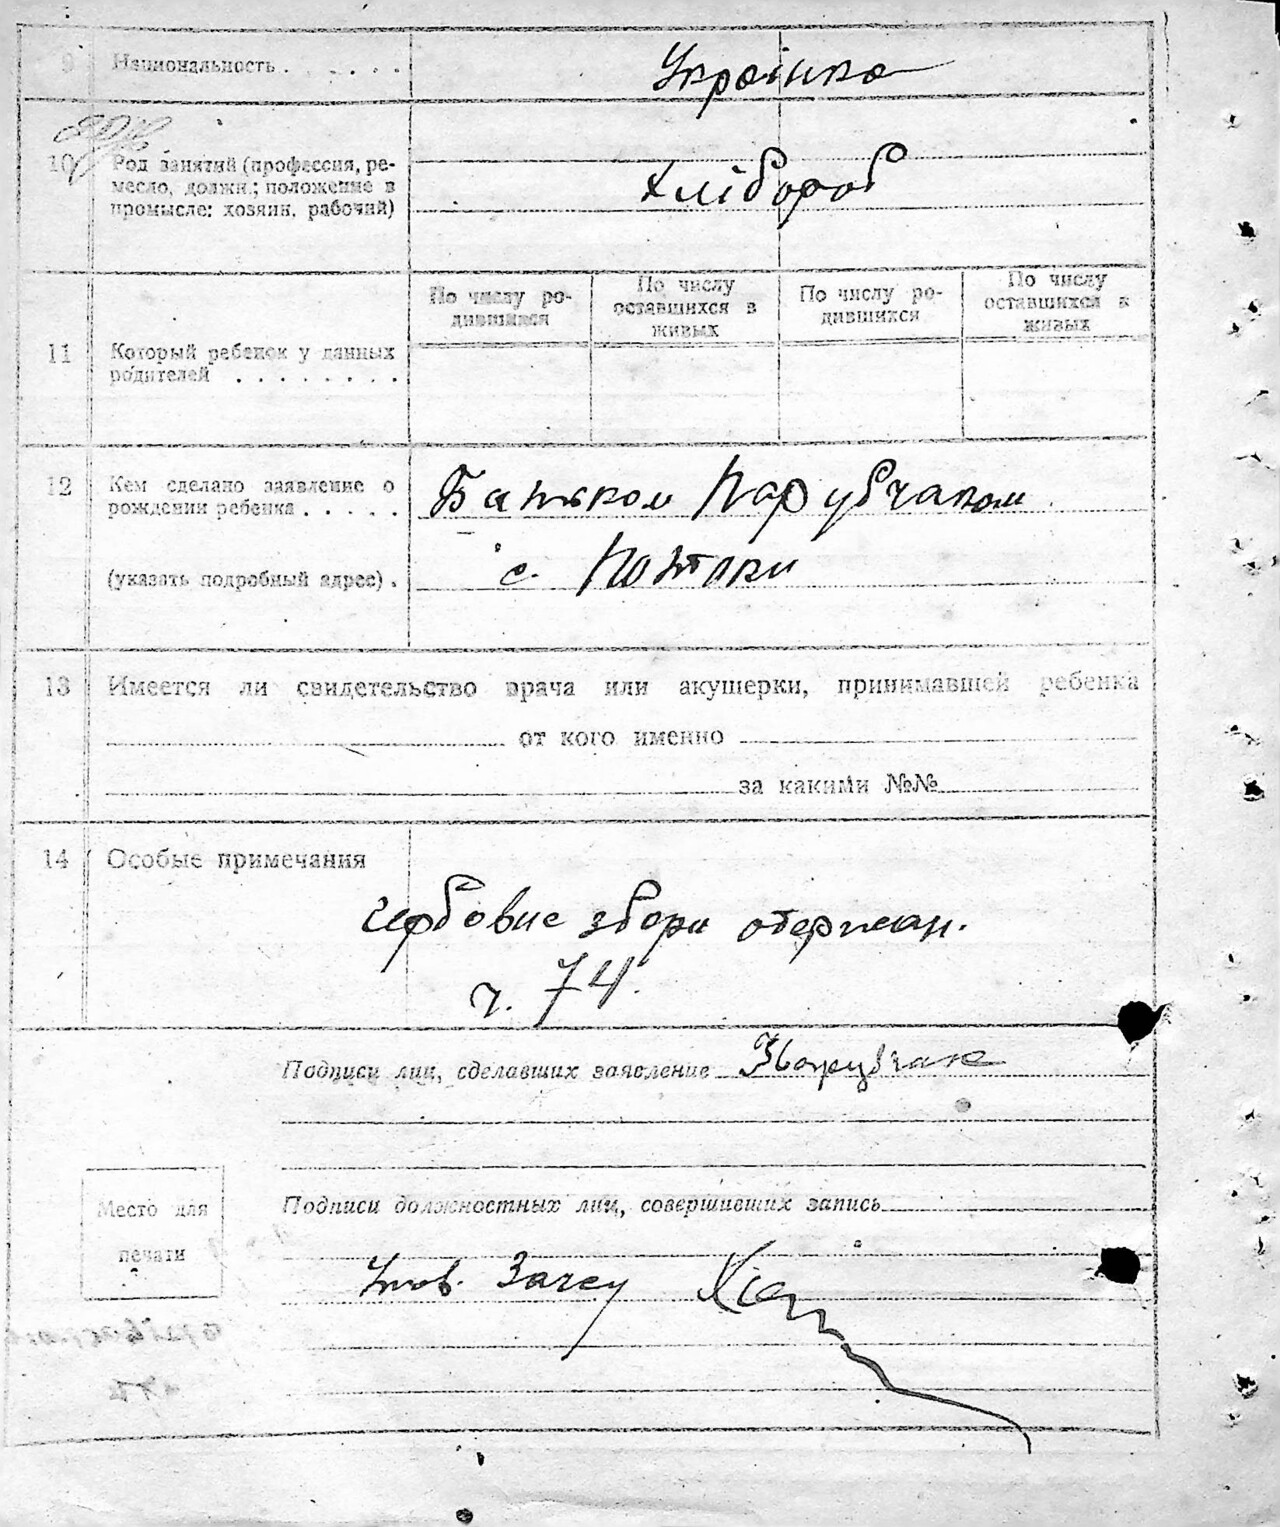 9 Национальность . . . . . . Українка
10 Род занятий (профессия, ре-
месло, должн.; положение в
промысле: хозяин, рабочий)
хлібороб
По числу ро-
дившихся
По числу
оставшихся в
живых
По числу ро-
дившихся
По числу
оставшихся в
живых
11 Который ребенок у данных
родителей . . . . . . . .
12 Кем сделано заявление о
рождении ребенка . . . . .
Батьком Парубчаком
(указать подробный адрес) .
с.
13 Имеется ли свидетельство врача или акушерки, принимавшей ребенка
от кого именно
за какими №№
14 Особые примечания
гербовие збори отержан.
ч. 74.
Подписи лиц, сделавших заявление
Место для
печати
Подписи должностных лиц, совершивших запись